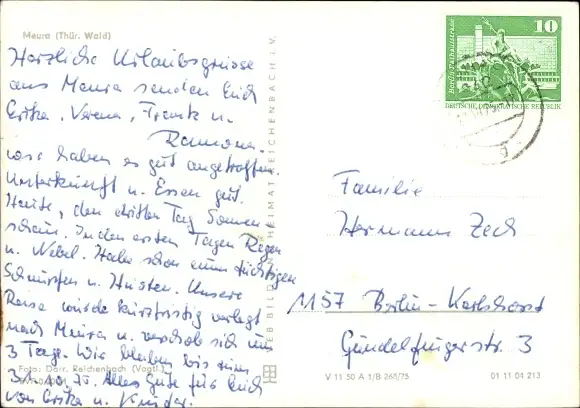 Meura (Thür. Wald)
Herzliche Urlaubsgrüsse
aus Meura senden Euch
Erika, Verena, Frank u.
Ramona.
haben es gut angetroffen
Unterkunft u. Essen gut.
Heute, den dritten Tag Sonnen-
schein. In den ersten Tagen Regen
u. Nebel. Habe schon einen tüchtigen
Schnupfen u. Husten. Unsere
Reise wurde kurzfristig verlegt
nach Meura u. verschob sich um
3 Tage. Wir bleiben bis zum
31.10.75. Alles Gute für Euch
von Erika u. Kinder.
Foto: Darr, Reichenbach (Vogtl.)
VEB BILD UND HEIMAT REICHENBACH i. V.
10
Berlin, Rathausstraße
DEUTSCHE DEMOKRATISCHE REPUBLIK
Familie
Hermann Zech
1157 Berlin-Karlshorst
Gündelfingerstr. 3
V 11 50 A 1/B 268/75
01 11 04 213